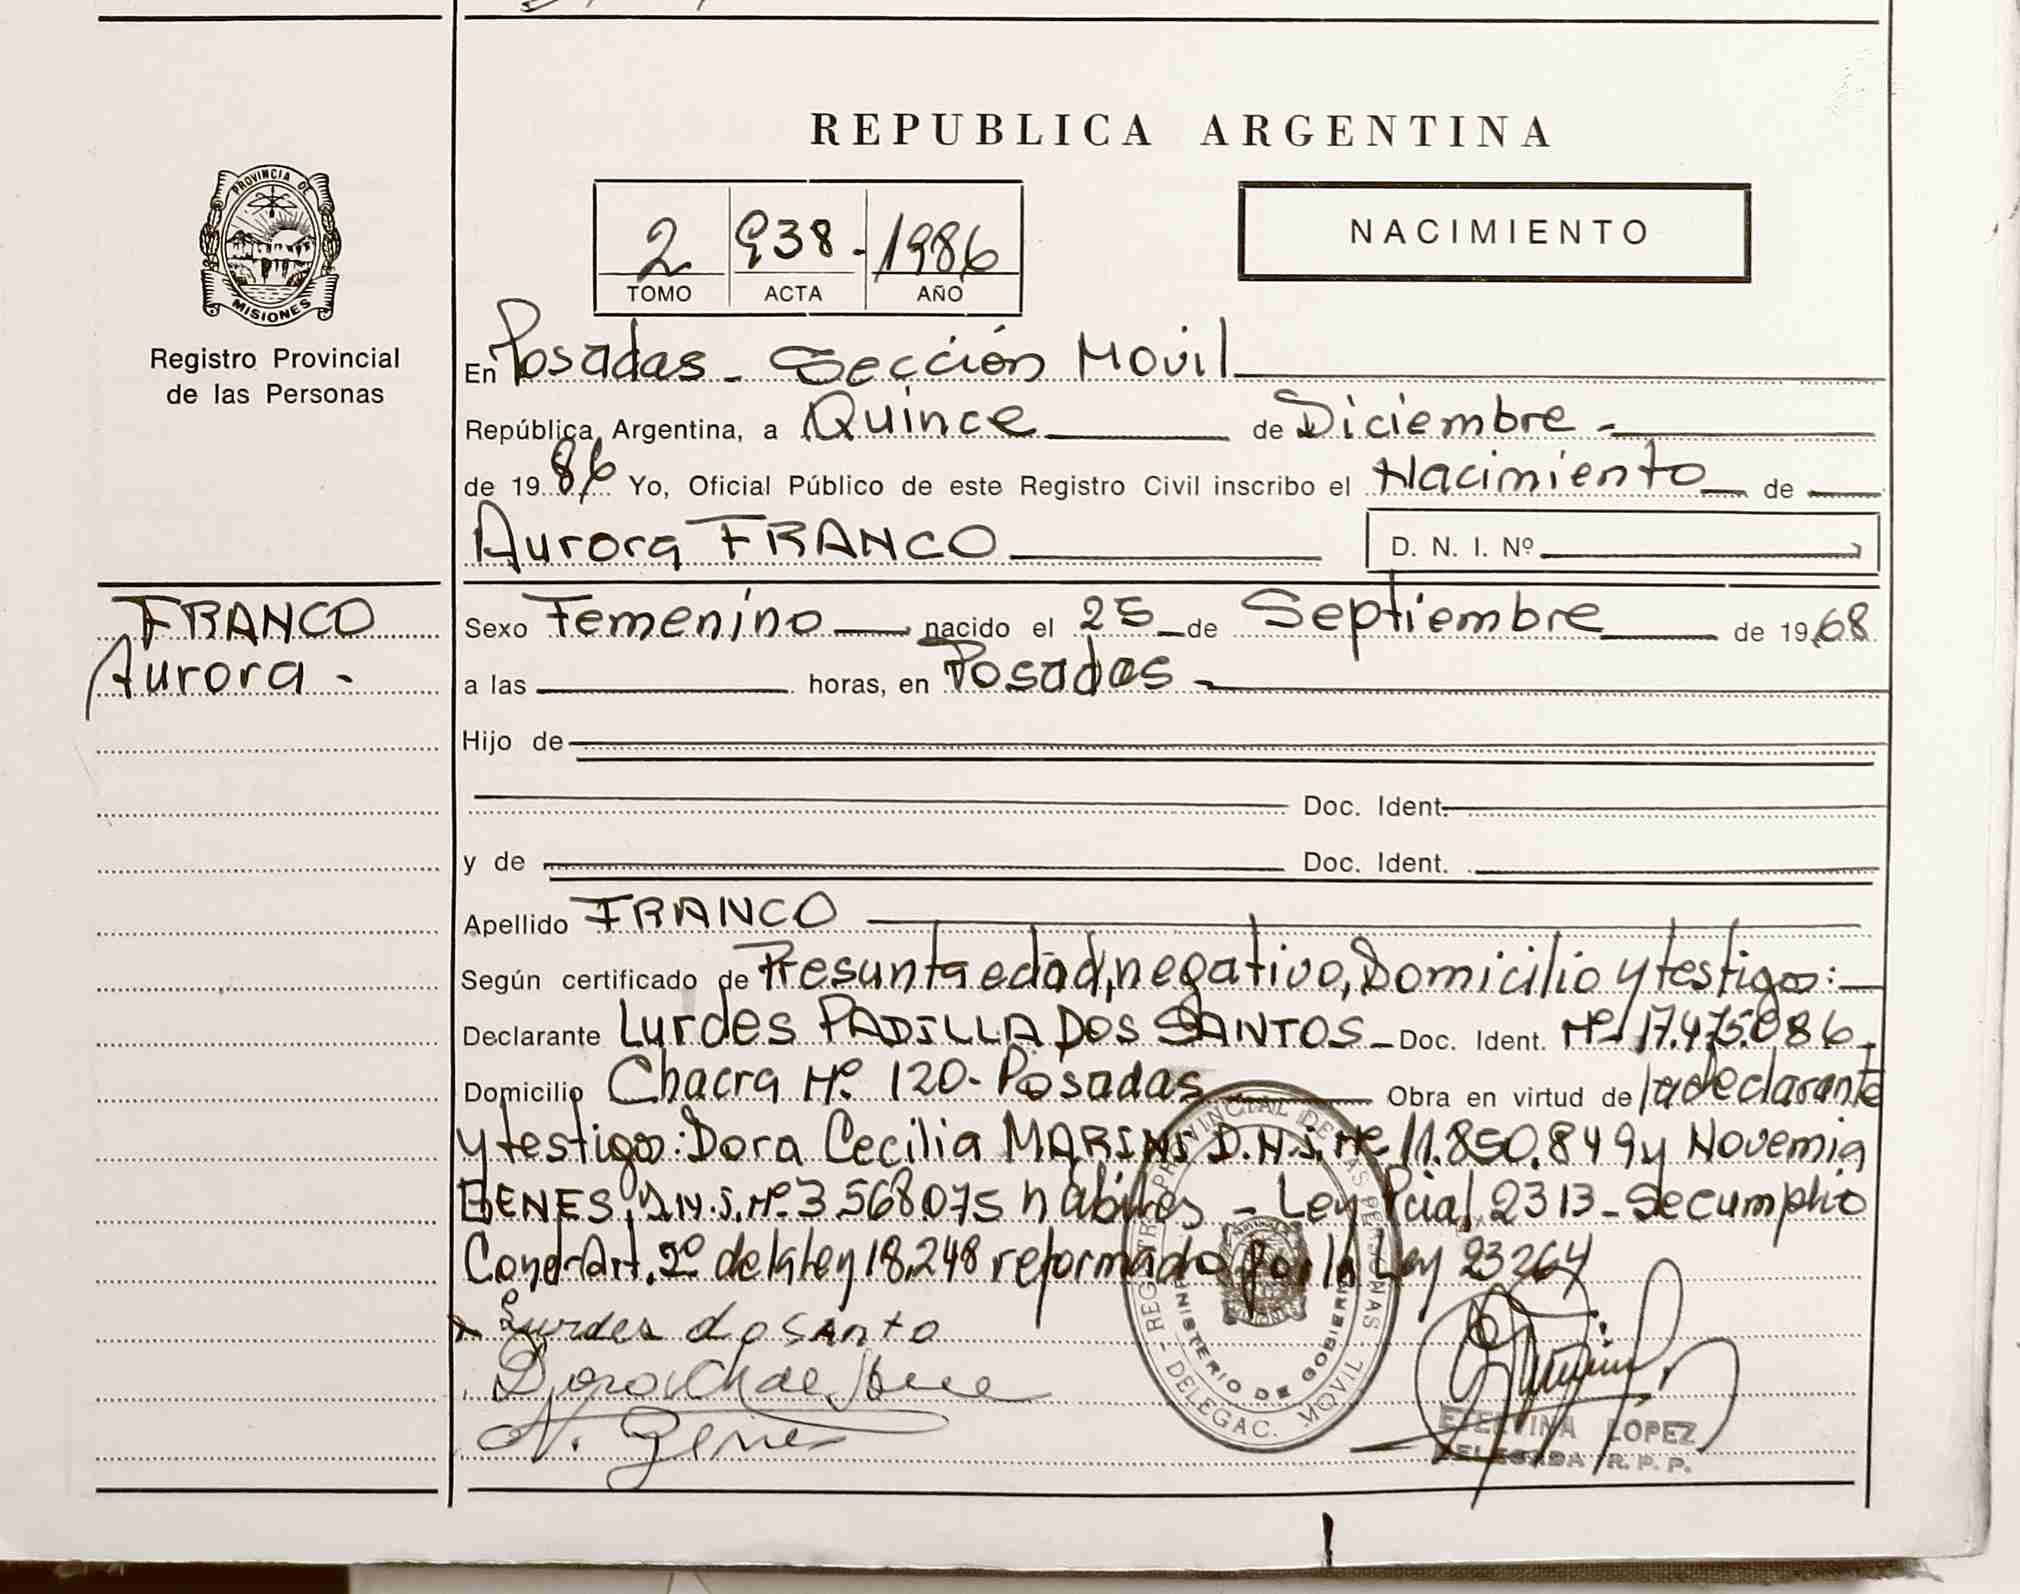 REPUBLICA ARGENTINA
PROVINCIA DE
MISIONES
Registro Provincial
de las Personas
2 938 - 1986
TOMO ACTA AÑO
NACIMIENTO
En Posadas - Sección Movil
República Argentina, a Quince de Diciembre -
de 1986 Yo, Oficial Público de este Registro Civil inscribo el Nacimiento de
Aurora FRANCO D. N. I. Nº
FRANCO
Aurora -
Sexo Femenino nacido el 25 de Septiembre de 1968
a las horas, en Posadas -
Hijo de
Doc. Ident.
y de Doc. Ident.
Apellido FRANCO
Según certificado de Presunta edad, negativo, Domicilio y testigos:
Declarante Lurdes PADILLA DOS SANTOS - Doc. Ident. Nº 17.475.086 -
Domicilio Chacra Nº 120 - Posadas Obra en virtud de la declarante
y testigos: Dora Cecilia MARINS D.N.I. Nº 11.850.849 y Novemia
BENES, D.N.I. Nº 3.568.075 hábiles - Ley Pcial 2313 - Se cumplio
Con el Art. 2º de la Ley 18.248 reformado por la Ley 23264
Lurdes do santo
N. Benes
REGISTRO PROVINCIAL DE LAS PERSONAS - DELEGAC. MOVIL
MINISTERIO DE GOBIERNO
ETELVINA LOPEZ
DELEGADA R. P. P.